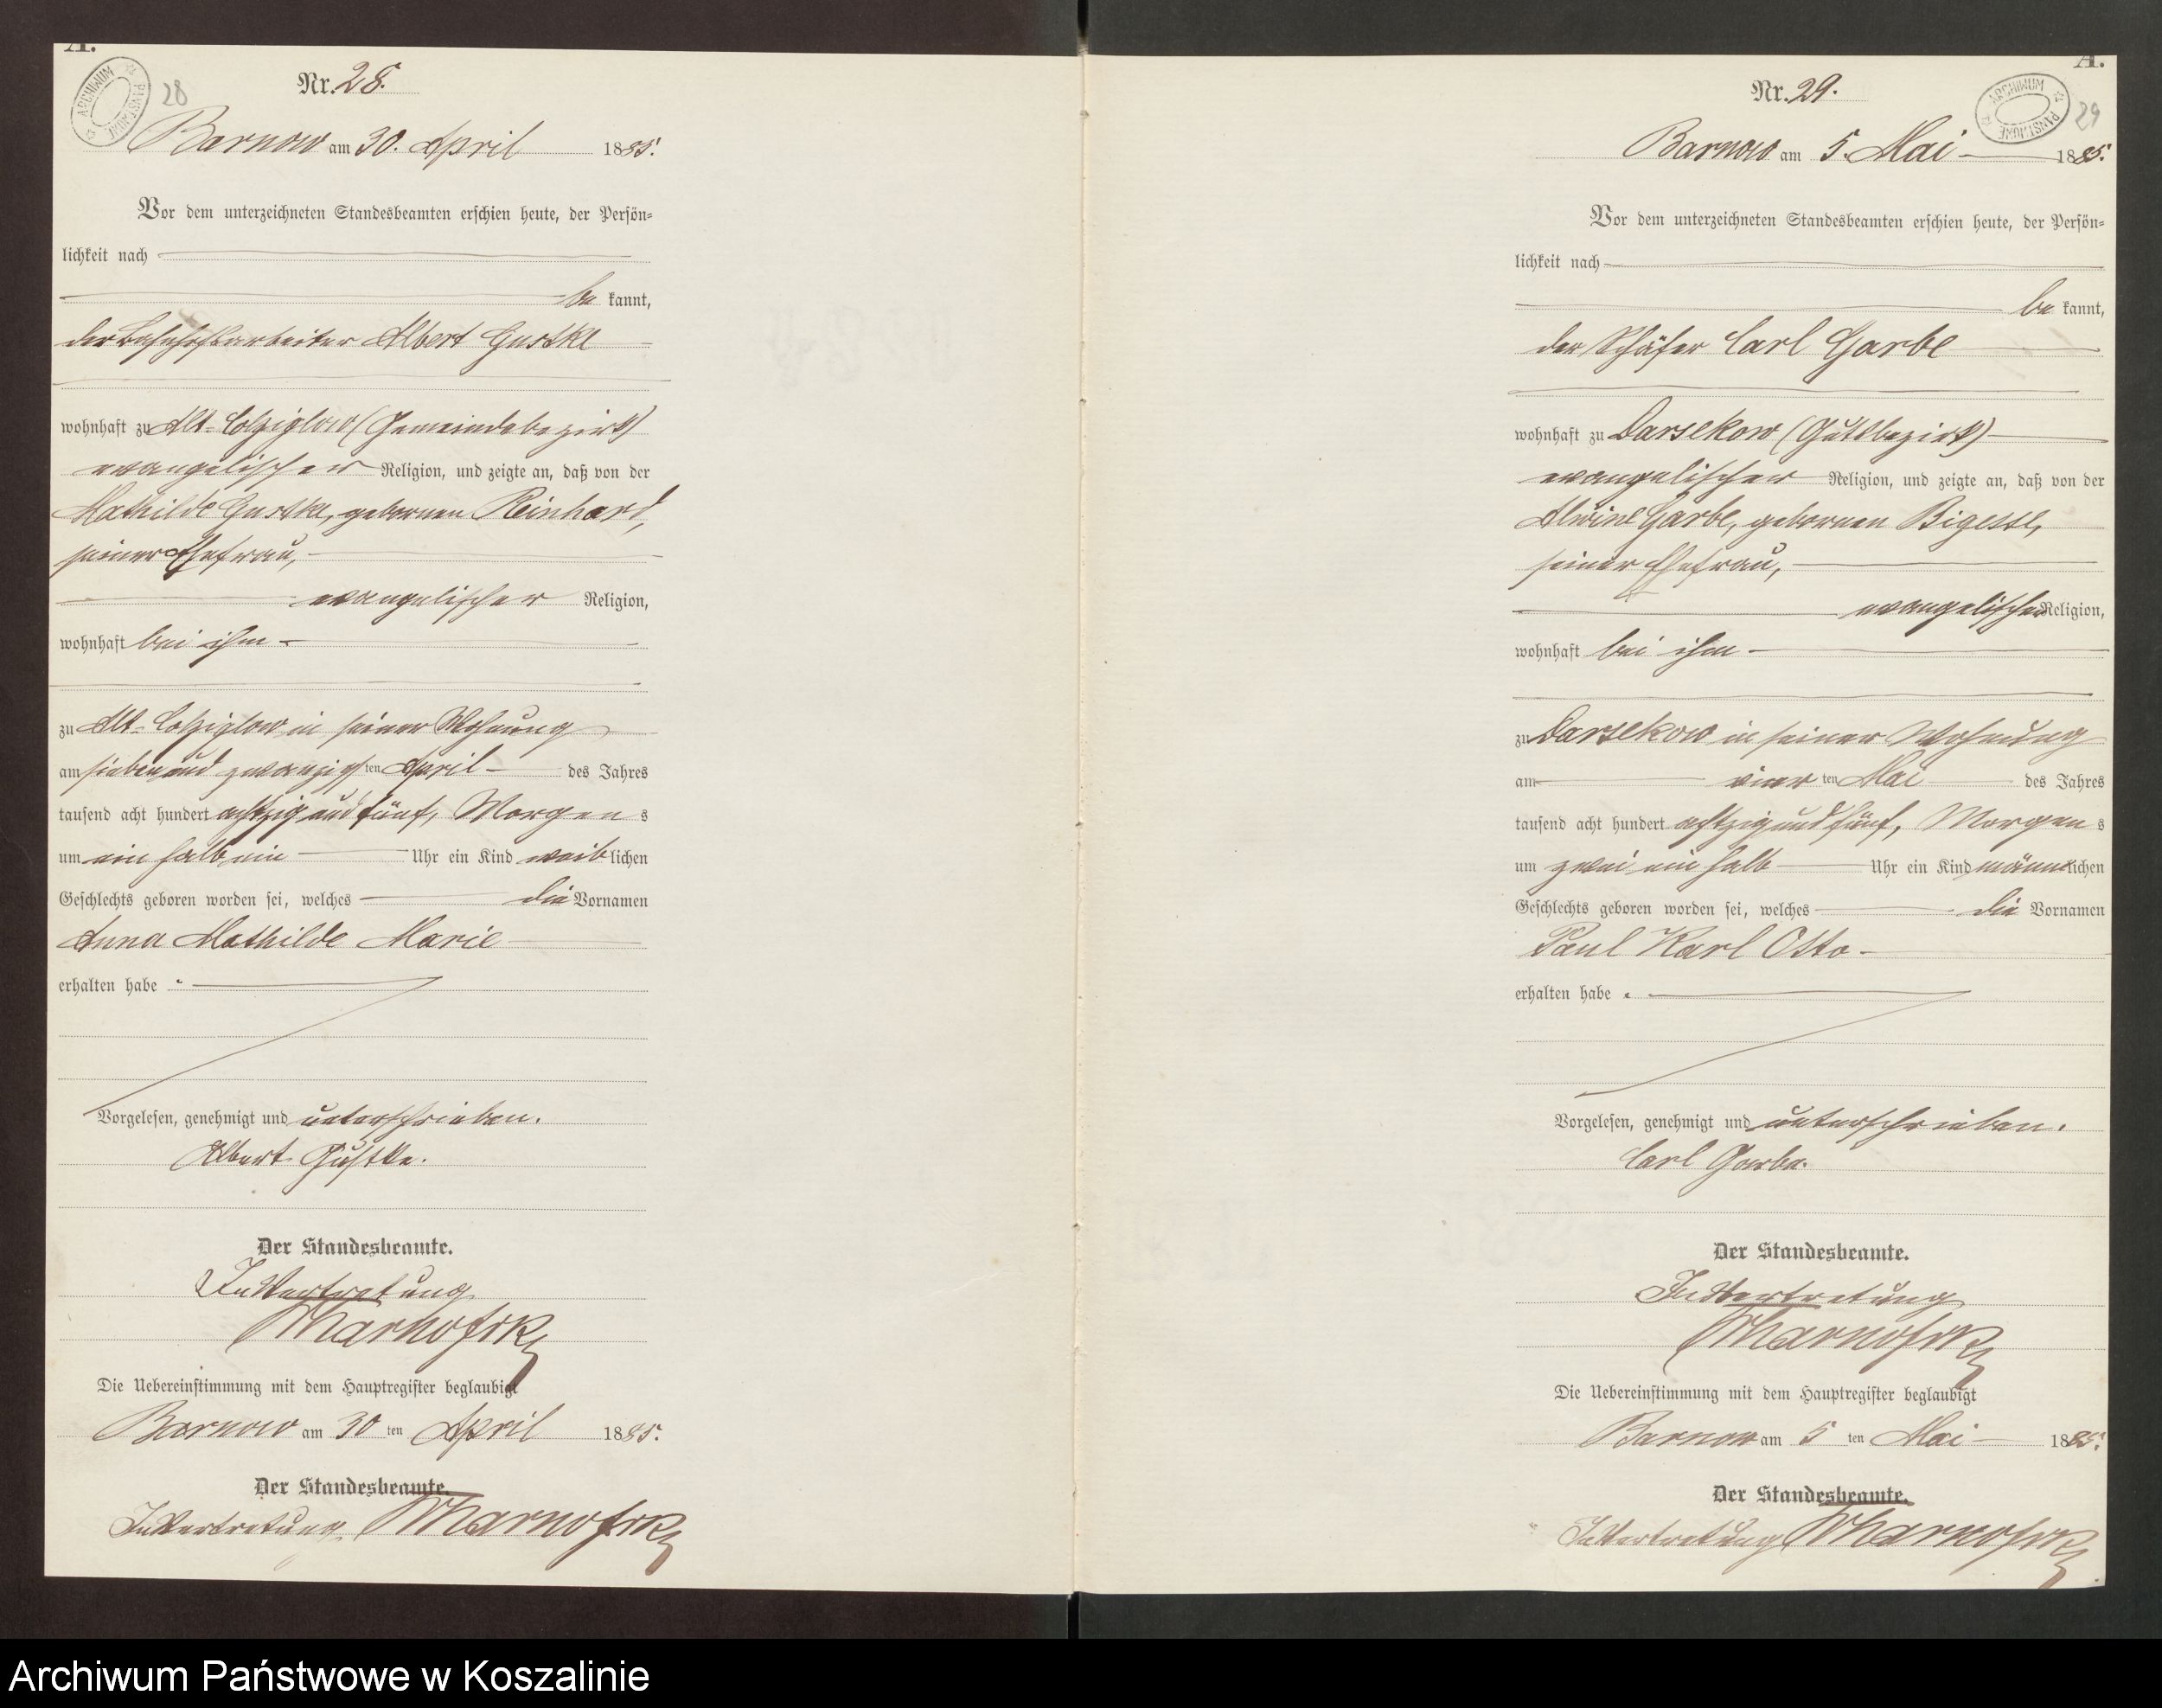 A.
ARCHIWUM PAŃSTWOWE
28
Nr. 28.
Barnow am 30. April 1885.
Vor dem unterzeichneten Standesbeamten erschien heute, der Persön=
lichkeit nach
be kannt,
der Bahnhofsarbeiter Albert Gustke
wohnhaft zu Alt-Colziglow (Gemeindebezirk)
evangelischer Religion, und zeigte an, daß von der
Mathilde Gustke, geborenen Reinhard,
seiner Ehefrau,
evangelischer Religion,
wohnhaft bei ihm
zu Alt-Colziglow in seiner Wohnung
am sieben und zwanzigsten April des Jahres
tausend acht hundert achtzig und fünf, Morgens
um ein halb ein Uhr ein Kind weiblichen
Geschlechts geboren worden sei, welches die Vornamen
Anna Mathilde Marie
erhalten habe.
Vorgelesen, genehmigt und unterschrieben.
Albert Gustke.
Der Standesbeamte.
In Vertretung
Die Uebereinstimmung mit dem Hauptregister beglaubigt
Barnow am 30 ten April 1885.
Der Standesbeamte.
In Vertretung
A.
ARCHIWUM PAŃSTWOWE
29
Nr. 29.
Barnow am 5. Mai 1885.
Vor dem unterzeichneten Standesbeamten erschien heute, der Persön=
lichkeit nach
be kannt,
der Schäfer Carl Garbe
wohnhaft zu Darsekow (Gutsbezirk)
evangelischer Religion, und zeigte an, daß von der
Alwine Garbe, geborenen Bigesse,
seiner Ehefrau,
evangelischer Religion,
wohnhaft bei ihm
zu Darsekow in seiner Wohnung
am vier ten Mai des Jahres
tausend acht hundert achtzig und fünf, Morgens
um zwei ein halb Uhr ein Kind männlichen
Geschlechts geboren worden sei, welches die Vornamen
Paul Karl Otto
erhalten habe.
Vorgelesen, genehmigt und unterschrieben.
Carl Garbe.
Der Standesbeamte.
In Vertretung
Die Uebereinstimmung mit dem Hauptregister beglaubigt
Barnow am 5 ten Mai 1885.
Der Standesbeamte.
In Vertretung
Archiwum Państwowe w Koszalinie